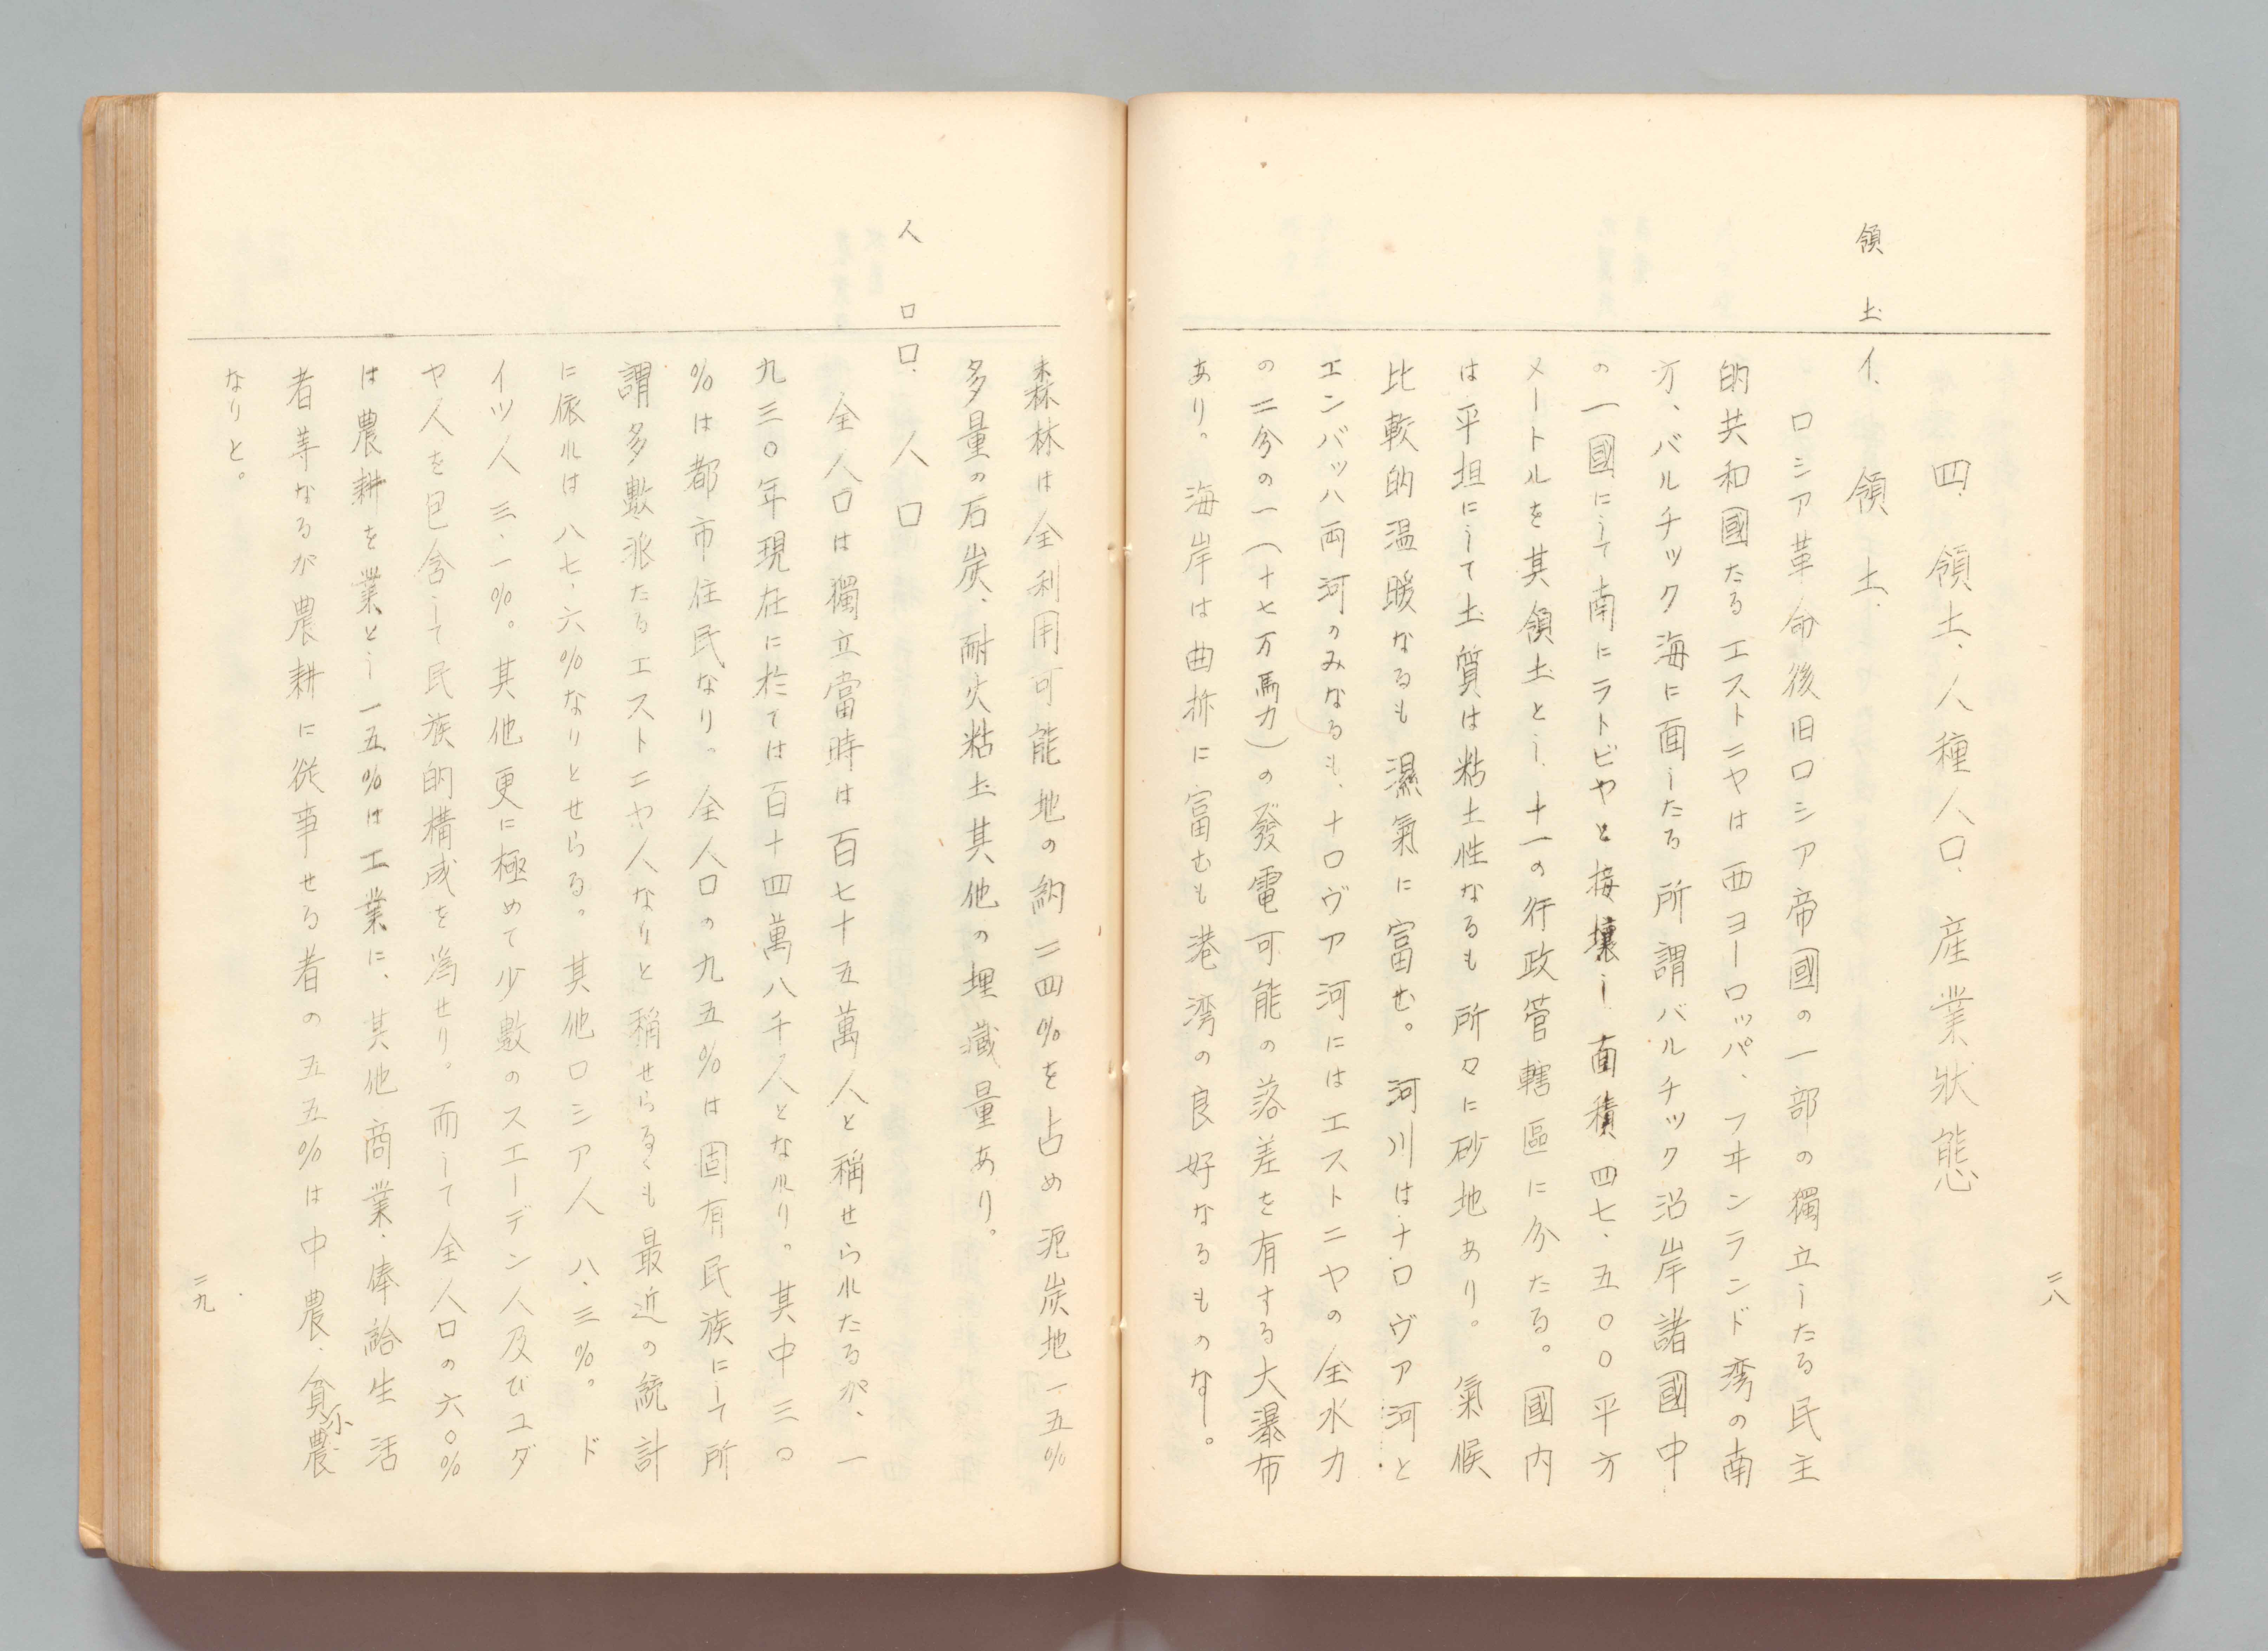 二八
四、領土、人種人口、産業狀態
領土
イ、領土、
ロシア革命後旧ロシア帝國の一部の獨立したる民主
的共和國たるエストニヤは西ヨーロッパ、フヰンランド湾の南
方、バルチック海に面したる所謂バルチック沿岸諸國中
の一國にして南にラトビヤと接壤し面積四七、五〇〇平方
メートルを其領土とし、十一の行政管轄區に分たる。國内
は平担にして土質は粘土性なるも所々に砂地あり。氣候
比較的温暖なるも濕氣に富む。河川はナロヴア河と
エンバッハ両河のみなるも、ナロヴア河にはエストニヤの全水力
の二分の一(十七万馬力)の發電可能の落差を有する大瀑布
あり。海岸は曲折に富むも港湾の良好なるものなし。
森林は全利用可能地の約二四%を占め泥炭地一五%
多量の石炭、耐火粘土其他の埋藏量あり。
人口
ロ、人口
全人口は獨立當時は百七十五萬人と稱せられたるが、一
九三〇年現在に於ては百十四萬八千人となれり。其中三〇
%は都市住民なり。全人口の九五%は固有民族にして所
謂多數派たるエストニヤ人なりと稱せらるゝも最近の統計
に依れは八七、六%なりとせらる。其他ロシア人八、三%。ド
イツ人三、一%。其他更に極めて少數のスエーデン人及びユダ
ヤ人を包含して民族的構成を為せり。而して全人口の六〇%
は農耕を業とし一五%は工業に、其他商業、俸給生活
者等なるが農耕に従事せる者の五五%は中農、貧小農
なりと。
二九